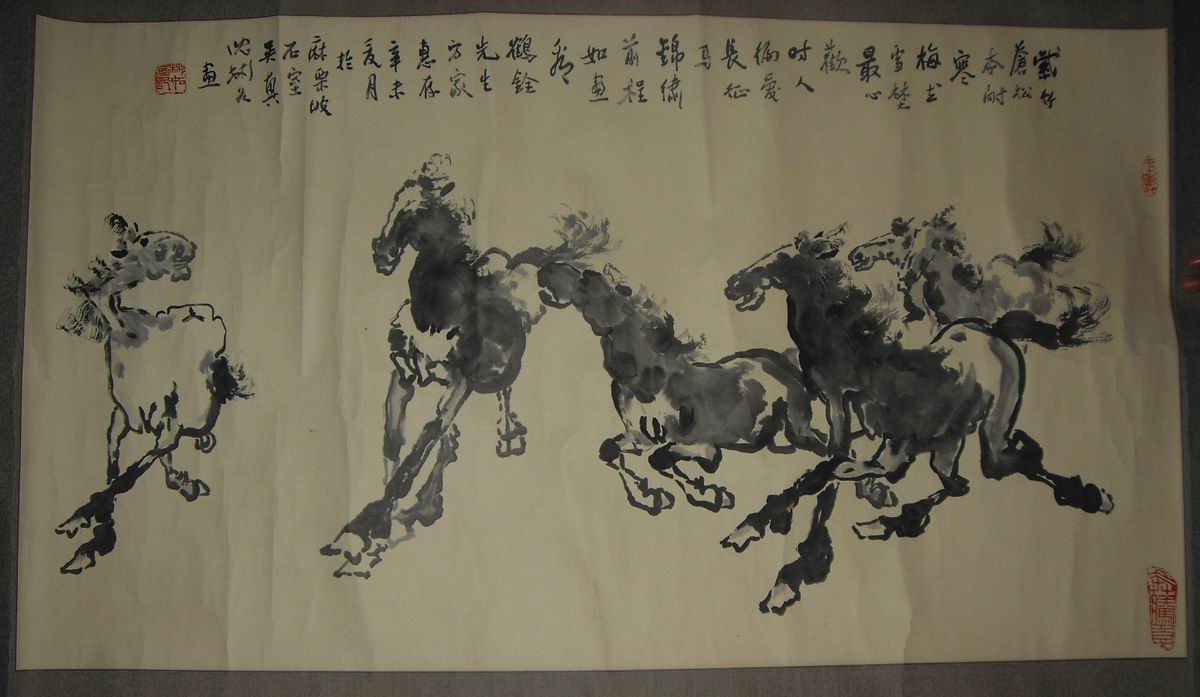 竹
蒼松
本耐
寒
梅
雪
最心
歡
時人
偏愛
長征
馬
錦繡
前程
如畫
看
鶴銓
先生
方家
惠存
辛未
夏月
於
麻栗坡
石室
畫